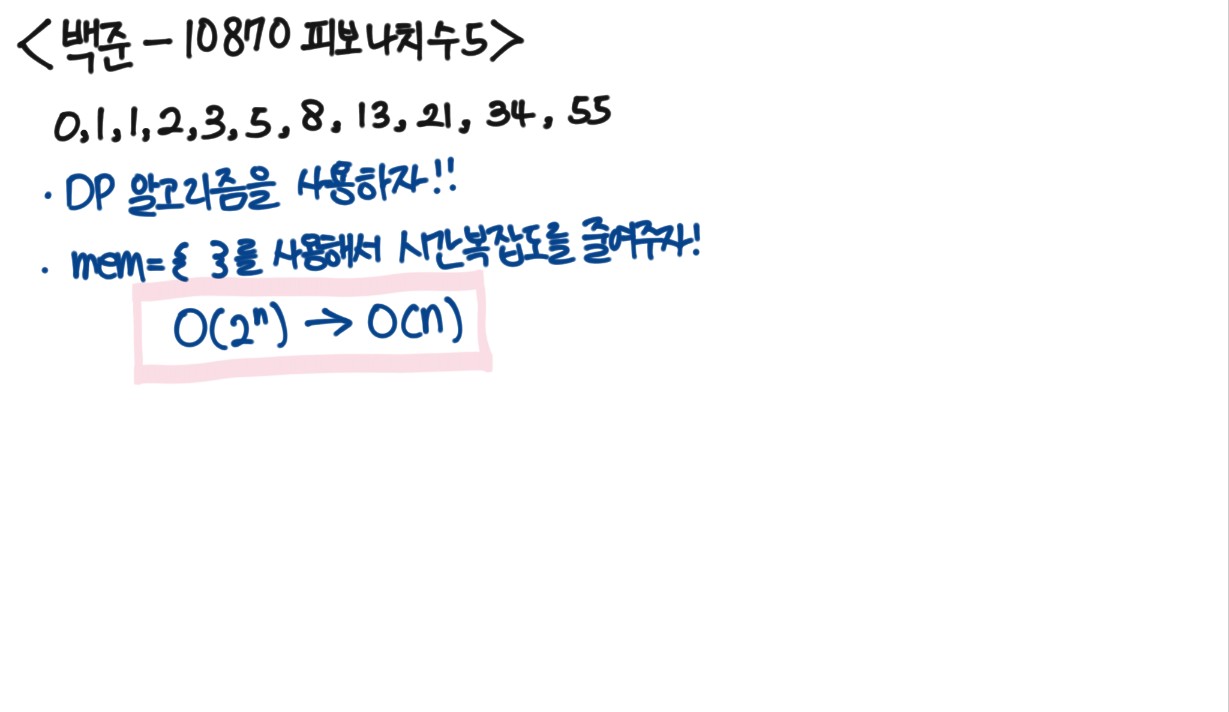 <백준 - 10870 피보나치 수5>
0,1,1,2,3,5,8,13,21,34,55
· DP 알고리즘을 사용하자!!
· mem={ }를 사용해서 시간복잡도를 줄여주자!
O(2ⁿ) → O(n)